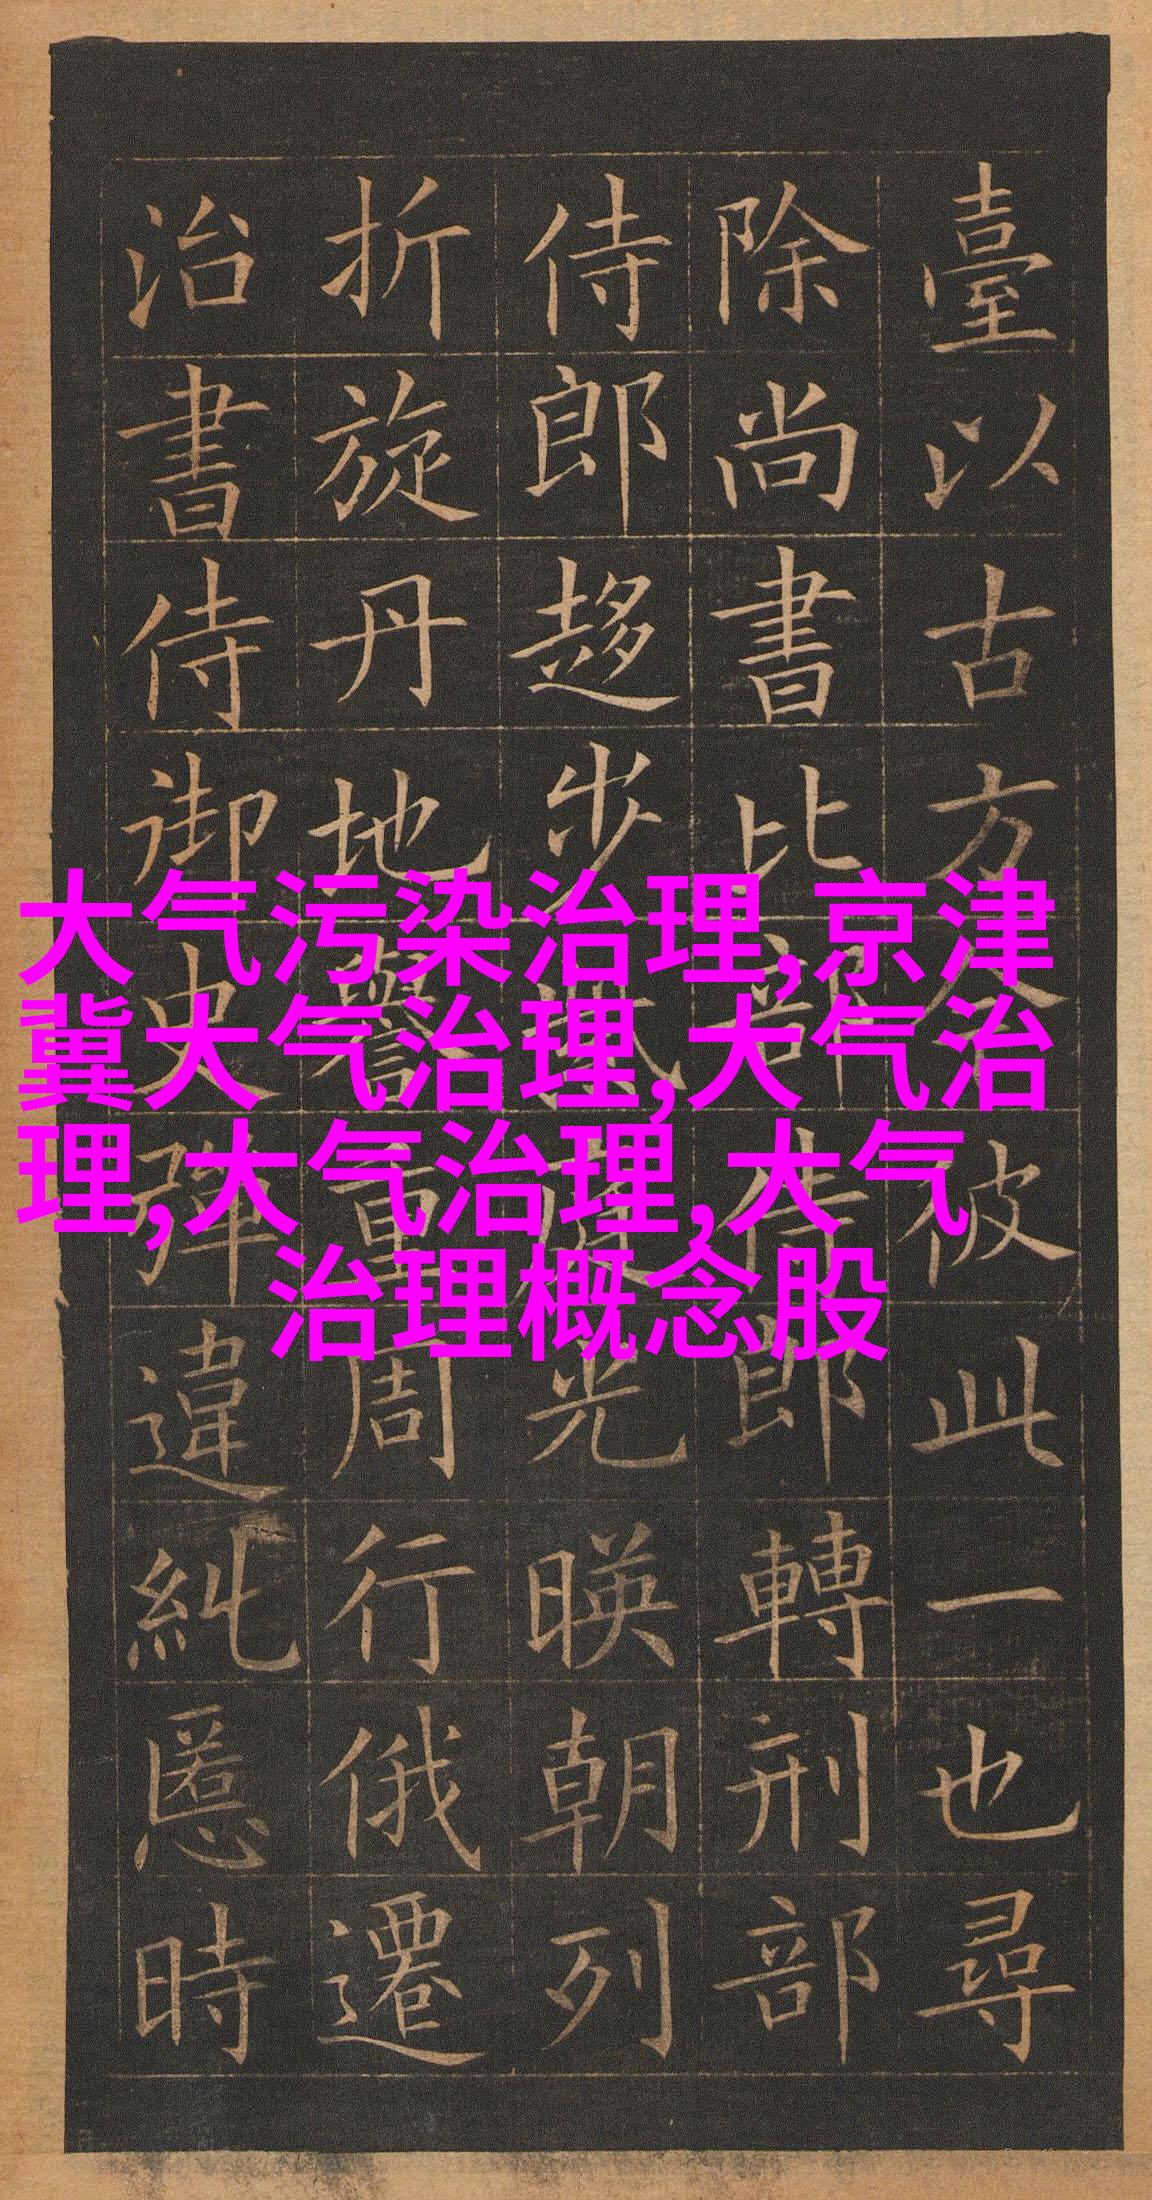 臺以古方今彼此一也尋
除尚書比部侍郎轉刑部
侍郎趍步光暎朝列
折旋丹地譽重周行俄遷
治書侍御史彈違糺慝時
大气污染治理,京津
冀大气治理,大气治
理,大气治理,大气
治理概念股